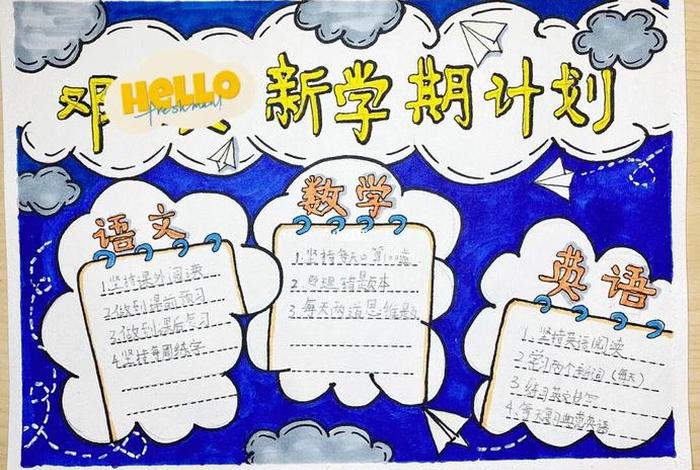 邓
HELLO
freshman
新学期计划
语文
1.坚持课外阅读
2.做到课前预习
3.做到课后复习
4.坚持每周练字
数学
1.坚持每天口算100道
2.整理错题本
3.每天两道思维题
英语
1.坚持英语阅读
2.学习两个新词(每天)
3.练习英文抄写
4.每天复习